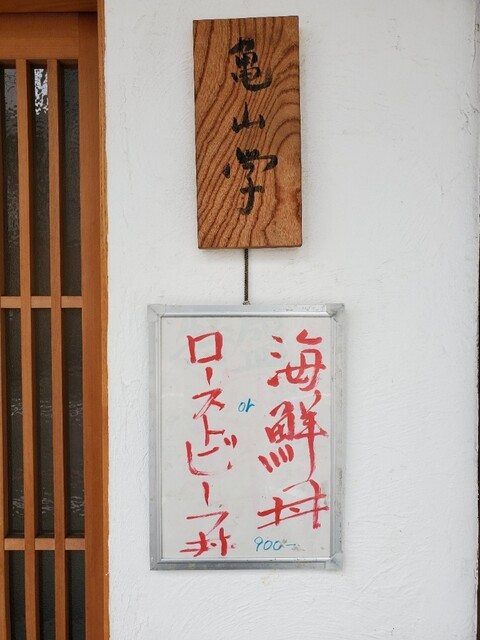 亀山学
海鮮丼
or
ローストビーフ丼
900-